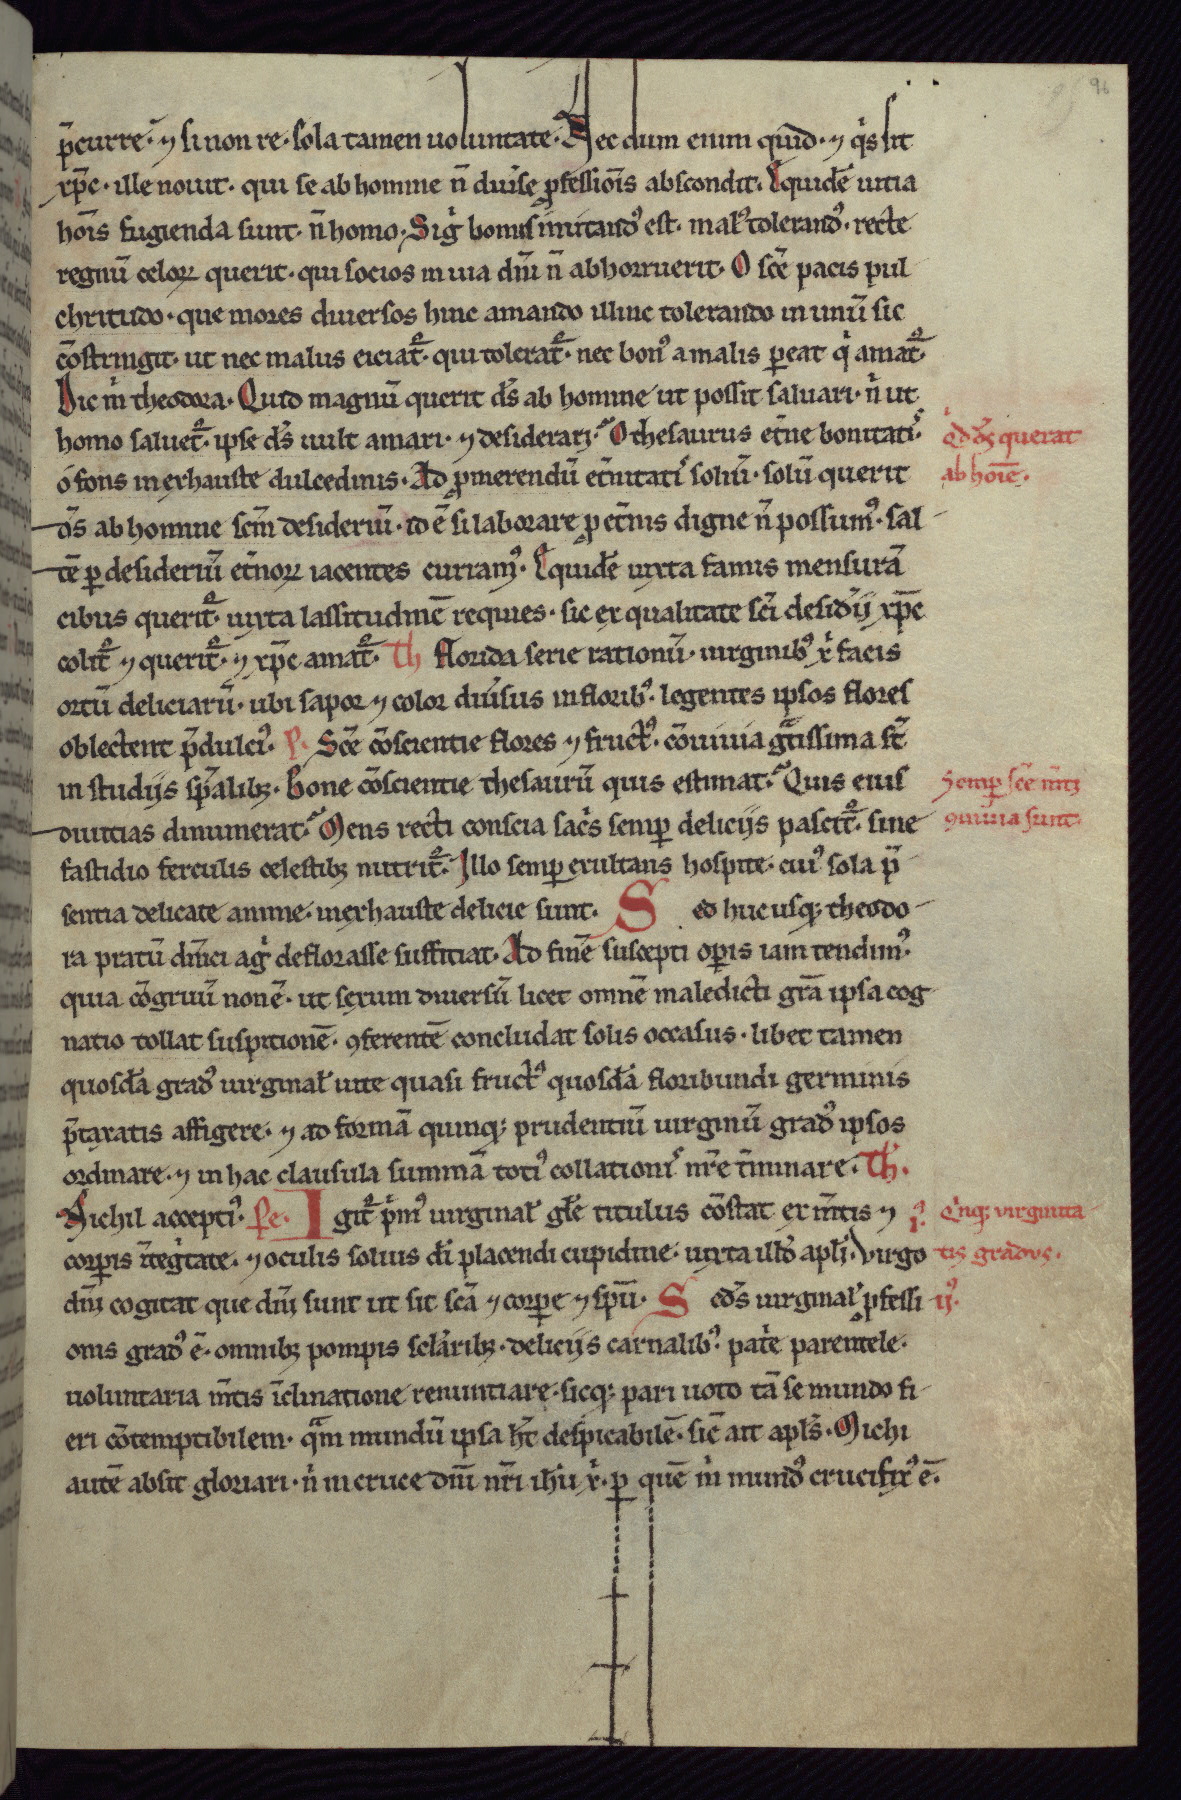 96
p̄currere. ⁊ si non re. sola tamen uoluntate. Nec dum enim quid. ⁊ q̇s sit
xp̄c. ille nouit. qui se ab homine n̄ diuise ꝓfessiōis abscondit. Equidē uitia
hoīs fugienda sunt. n̄ homo. Sigͥ bonus imitandꝰ est. malꝰ tolerandꝰ. recte
regnū celoꝝ querit. qui socios in uia dn̄i n̄ abhorruerit. O scē pacis pul
chritudo. que mores diuersos hinc amando illinc tolerando in unū sic
c̄ostringit. ut nec malus eiciat᷑. qui tolerat᷑. nec bonꝰ a malis pereat qͥ amat᷑.
Dic m̊ theodora. Quid magnū querit ds̄ ab homine ut possit saluari. nͥ ut
homo saluet᷑. ipse ds̄ uult amari. ⁊ desiderari. O thesaurus et̄ne bonitatis.
o fons inexhauste dulcedinis. Ad ꝓmerendū et̄nitatis soliū. solū querit
ds̄ ab homine scm̄ desideriū. id ē si laborare ꝓ et̄nis digne n̄ possumꝰ. sal
tē ꝑ desideriū et̄noꝝ iacentes curramꝰ. Equidē iuxta famis mensurā
cibus querit᷑. iuxta lassitudinē requies. sic ex qualitate scī desid̄ii xp̄c
colit᷑ ⁊ querit᷑. ⁊ xp̄c amat᷑. Th florida serie rationū. uirginibꝰ xͥ facis
ortū deliciarū. ubi sapor ⁊ color diūsus in floribꝰ. legentes ipsos flores
oblectent p̄dulciꝰ. P. Scē c̄oscientie flores ⁊ fructꝰ. c̄ouiuia gͣtissima st̄
in studiis spāalibꝫ. Bone c̄oscientie thesaurū quis estimat. Quis eius
diuicias dinumerat. Mens recti conscia sac̄s semꝑ deliciis pascit᷑. sine
fastidio ferculis celestibꝫ nutrit᷑. Illo semꝑ exultans hospite. cuiꝰ sola p̄
sentia delicate anime. inexhauste delicie sunt. Sed huc usqꝫ theodo
ra pratū dn̄ici agͥ deflorasse sufficiat. Ad finē suscepti oꝑis iam tendimꝰ.
quia c̄ogruū non ē. ut sexum diuersū licet omnē maledicti gr̄a ipsa cog
natio tollat suspitionē. ꝯferentē concludat solis occasus. libet tamen
quosdā gradꝰ uirginal᷑ uite quasi fructꝰ quosdā floribundi germinis
p̄taxatis affigere. ⁊ ad formā quinqꝫ prudentiū uirginū gradꝰ ipsos
ordinare. ⁊ in hac clausula summā totiꝰ collationis nr̄e t̄minare. Th.
Nichil acceptiꝰ. Pe. Igit᷑ pͥmꝰ uirginal᷑ gl̄e titulus c̄ostat ex m̄tis ⁊
corꝑis īteg̊tate. ⁊ oculis solius dī placendi cupidine. iuxta illd̄ apl̄i. Virgo
dn̄i cogitat que dn̄i sunt ut sit scā ⁊ corꝑe ⁊ spū. Sed̄s uirginal᷑ ꝓfessi
onis gradꝰ ē. omnibꝫ pompis scl̄aribꝫ. deliciis carnalibꝰ. pat̄e parentele.
uoluntaria m̄tis īclinatione renuntiare. sicqꝫ pari uoto tā se mundo fi
eri c̄otemptibilem. qͣm mundū ipsa ht̄ despicabilē. sic̄ ait apls̄. Michi
autē absit gloriari. nͥ in cruce dn̄i nr̄i ih̄u xͥ. ꝑ quē m̊ mundꝰ crucifixꝰ ē.
qd̄ ds̄ querat
ab hoīe.
Semꝑ scē m̄tꝫ
ꝯuiuia sunt.
i. Qͥnqꝫ virginita
tis gradus.
ijꝰ.